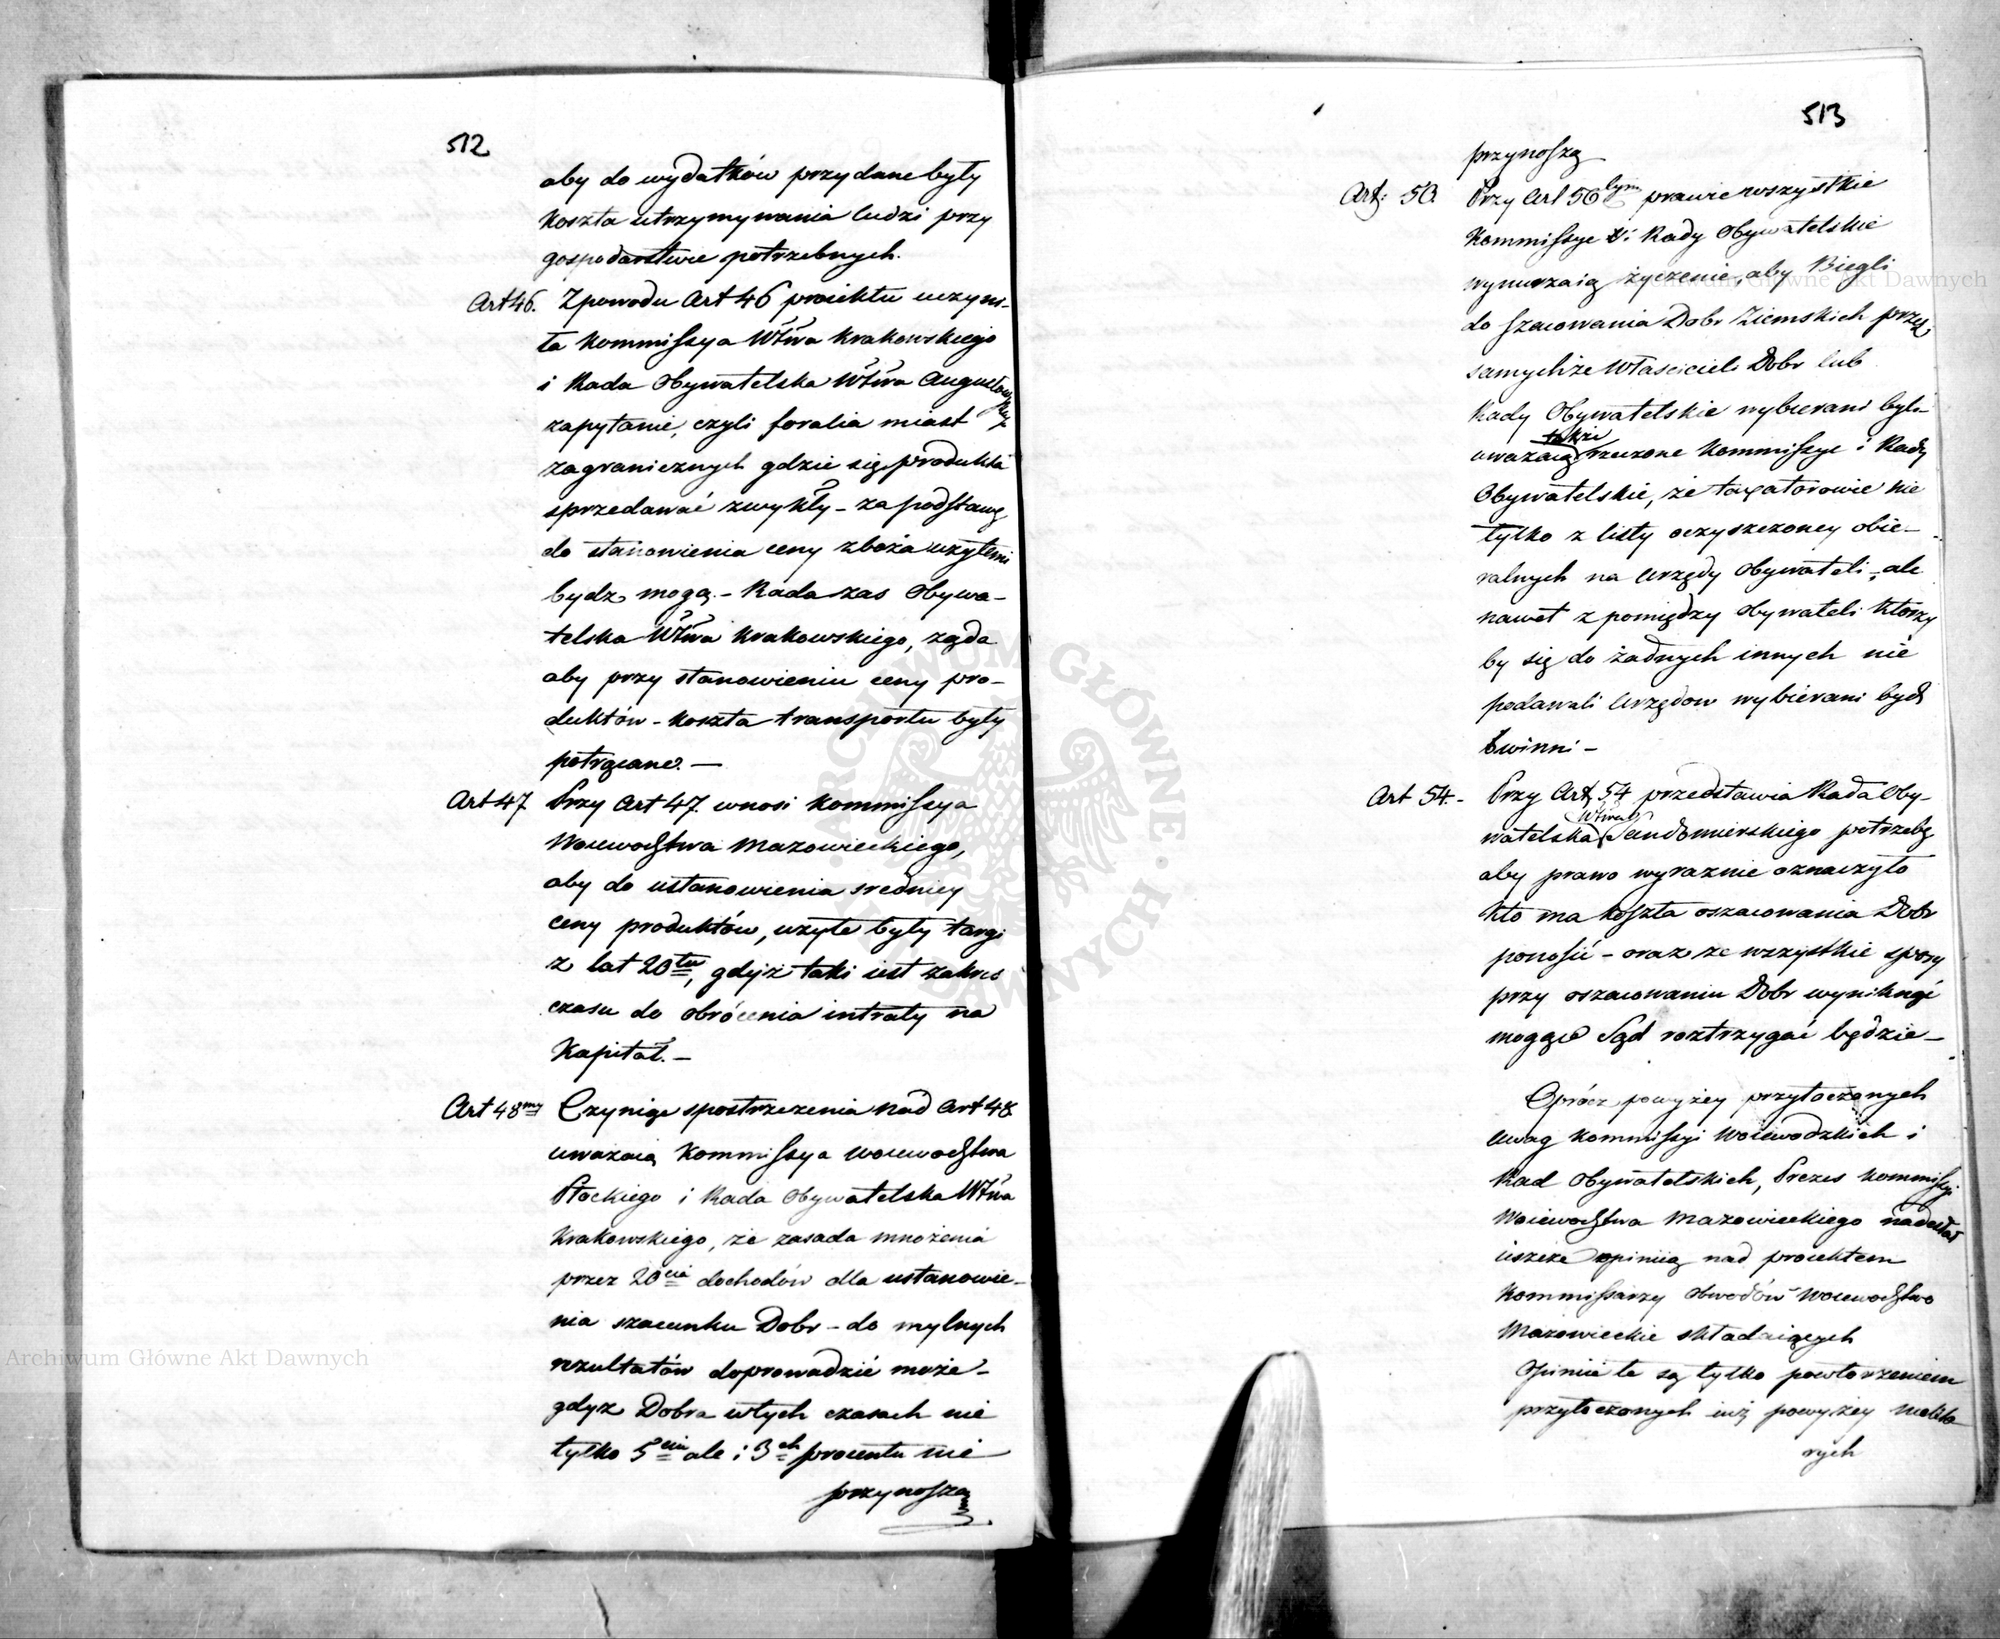 512
aby do wydatków przydane były
koszta utrzymywania ludzi przy
gospodarstwie potrzebnych.
Art 46. Z powodu Art 46 proiektu uczyni-
ła Kommissya Wtwa Krakowskiego
i Rada Obywatelska Wtwa Augustowskgo
zapytanie, czyli foralia miast
zagranicznych gdzie się produkta
sprzedawać zwykły – za podstawę
do stanowienia ceny zboża użytemi
bydz mogą. – Rada zas Obywa-
telska Wtwa Krakowskiego, żąda
aby przy stanowieniu ceny pro-
duktów – koszta transportu były
potrącane. –
Art 47 Przy Art 47. wnosi Kommissya
Woiewodztwa Mazowieckiego,
aby do ustanowienia sredniey
ceny produktów, użyte były targi
z lat 20tu, gdyż taki iest zakres
czasu do obrócenia intraty na
Kapitał. –
Art 48my Czyniąc spostrzeżenia nad Art 48
uważaią Kommissya Woiewodztwa
Płockiego i Rada Obywatelska Wtwa
Krakowskiego, że zasada mnożenia
przez 20cia dochodów dla ustanowie-
nia szacunku Dobr – do mylnych
rezultatów doprowadzić może –
gdyz Dobra wtych czasach nie
tylko 5ciu ale i 3ch procentu nie
przynoszą
513
przynoszą
Art: 50. Przy Art 50tym prawie wszystkie
Kommissye i Rady Obywatelskie
wynurzaią życzenie, aby Biegli
do szacowania Dobr Ziemskich przez
samychże Właścicieli Dobr lub
Rady Obywatelskie wybierani byli –
także
uważaią rzeczone Kommissye i Rady
Obywatelskie, że taxatorowie nie
tylko z listy oczyszczoney obie-
ralnych na Urzędy Obywateli, ale
nawet z pomiędzy Obywateli którzy
by się do żadnych innych nie
podawali Urzędow wybierani bydź
winni –
Art 54. – Przy Art, 54 przedstawia Rada Oby-
Wtwa
watelska Sandomierskiego potrzebę
aby prawo wyraznie oznaczyło
kto ma koszta oszacowania Dobr
ponosić – oraz ze wszystkie spory
przy oszacowaniu Dobr wyniknąć
mogące Sąd roztrzygać będzie –
Oprócz powyżey przytoczonych
uwag Kommissyi Woiewodzkich i
Rad Obywatelskich, Prezes Kommissyi
Woiewodztwa Mazowieckiego nadesłał
ieszcze opinią nad proiektem
Kommissarzy Obwodów Woiewodztwo
Mazowieckie składaiących
Opinie te są tylko powtorzeniem
przytoczonych iuż powyżey
rych
Archiwum Główne Akt Dawnych
Archiwum Główne Akt Dawnych
ARCHIWUM GŁÓWNE AKT DAWNYCH